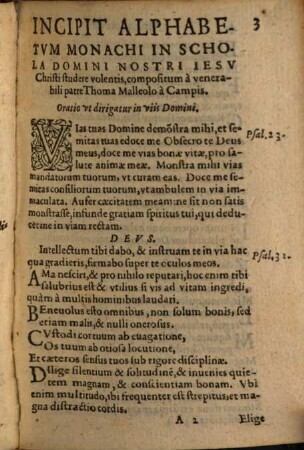 INCIPIT ALPHABE- 3
TVM MONACHI IN SCHO-
LA DOMINI NOSTRI IESV
Christi studere volentis, compositum à venera-
bili patre Thoma Malleolo à Campis.
Oratio vt dirigatur in viis Domini.
VIas tuas Domine demõstra mihi, et se-
mitas tuas edoce me Obsecro te Deus Psal. 23.
meus, doce me vias bonæ vitæ, pro sa-
lute animæ meæ. Monstra mihi vias
mandatorum tuorum, vt curam eas. Doce me se-
mitas consiliorum tuorum, vt ambulem in via im-
maculata. Aufer cæcitatem meam: ne sit non satis
monstrasse, infunde gratiam spiritus tui, qui dedu-
cat me in viam rectam.
DEVS.
Intellectum tibi dabo, & instruam te in via hac Psal. 31.
qua gradieris, firmabo super te oculos meos.
AMa nesciri, & pro nihilo reputari, hoc enim tibi
salubrius est & vtilius si vis ad vitam ingredi,
quàm à multis hominibus laudari.
BEneuolus esto omnibus, non solum bonis, sed
etiam malis, & nulli onerosus.
CVstodi cor tuum ab euagatione,
Os tuum ab otiosa locutione,
Et cæteros sensus tuos sub rigore disciplinæ.
DIlige silentium & solitudinẽ, & inuenies quie-
tem magnam, & conscientiam bonam. Vbi
enim multitudo, ibi frequenter est strepitus, et ma-
gna distractio cordis.
A 2 Elige